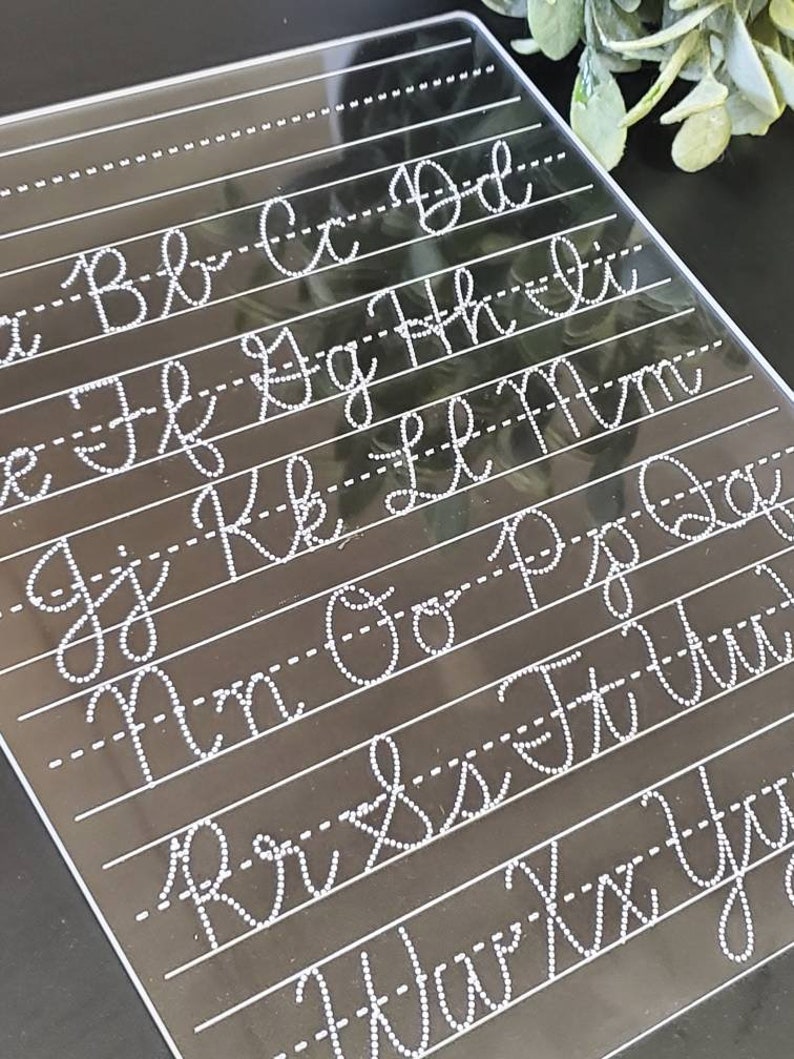 a Bb Cc Dd
e Ff Gg Hh Ii
Jj Kk Ll Mm
Nn Oo Pp Qq
Rr Ss Tt Uu
Ww Xx Yy